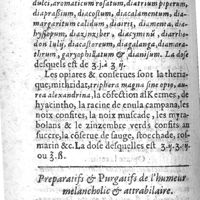 dulci, aromaticum rosatum, diatrium piperum,
diaprasium, diacostum, diacalamentum, dia-
margaritum calidum, diairis, diamenta, dia-
hyssopum, diaxyloaloes, diacyminū, diarrho-
don Iulij, diacastoreum, diagalanga, diamara-
thrum, garyophyllatum & dianisum. La dose
desquels est de ʒ.j.à ʒ ij.
Les opiates & conserues sont la theria-
que, mithridat, triphera magna sine opio, au-
rea alexandrina, la cōfection alKermes, de
hyacintho, la racine de enula campana, les
noix confites, la noix muscade, les myra-
bolans & le zinzembre verds confits au
succre, la cōserue de sauge, stœchade, ros-
marin &c. La dose desquelles est ʒ.ij. ʒ.iij.
ou ℥.ß.
Preparatifs & Purgatifs de l'humeur
melancholic & attrabilaire.